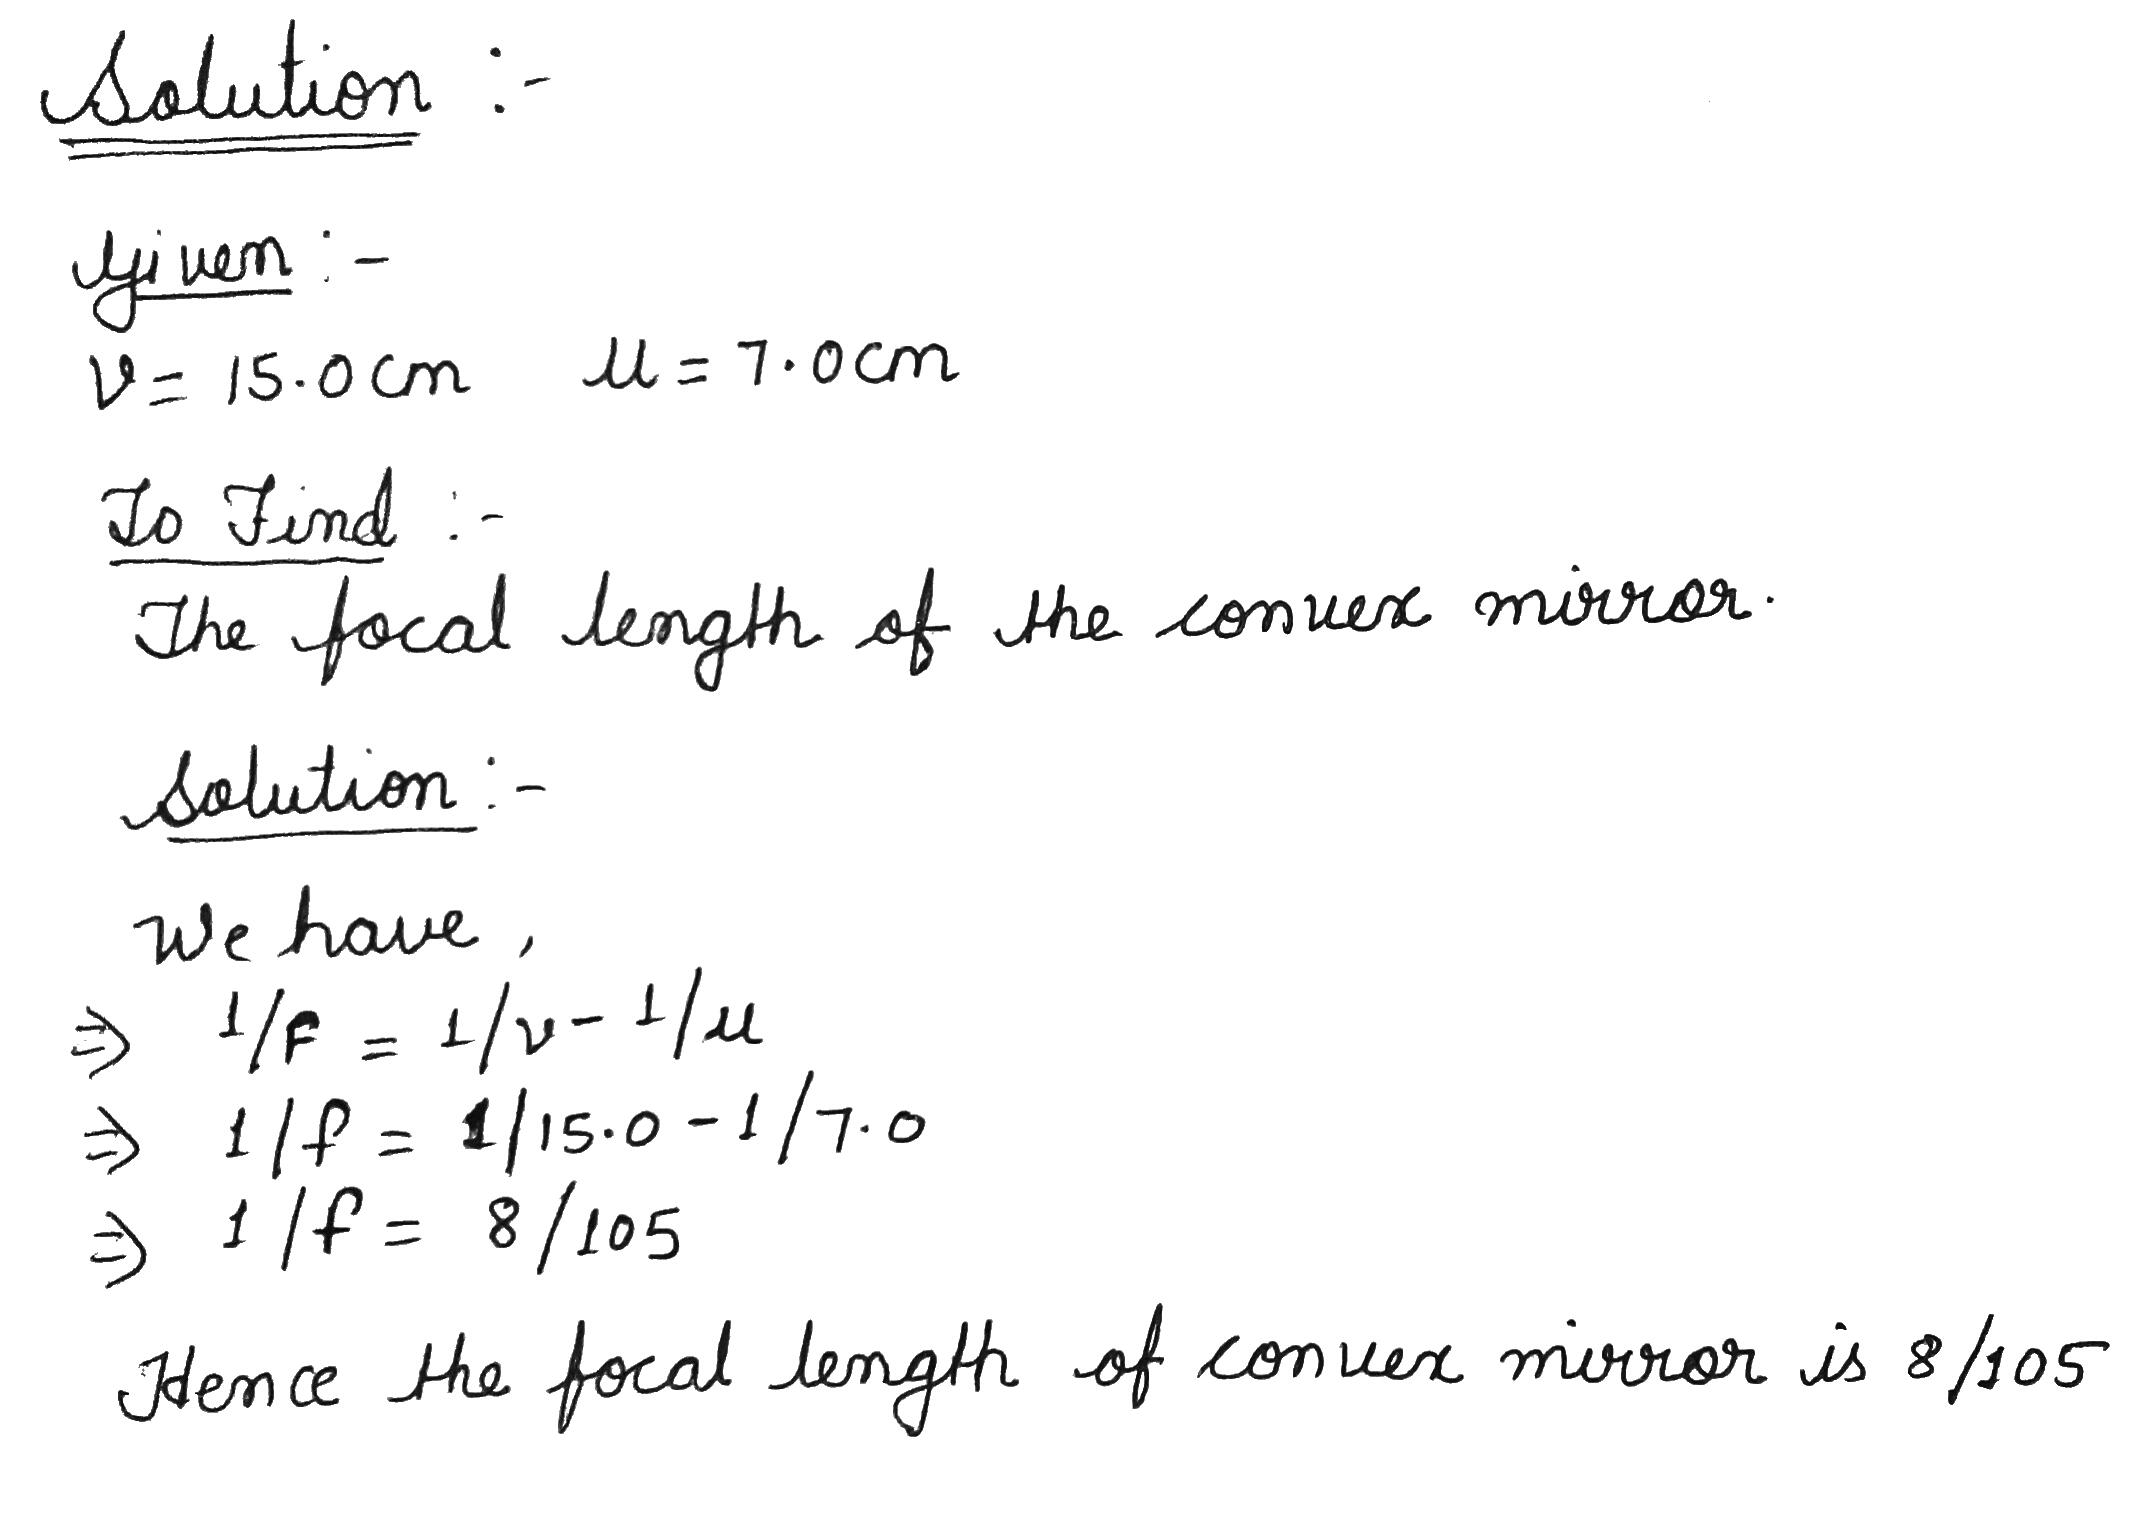 Solution :-
Given :-
v = 15.0 cm u = 7.0 cm
To Find :-
The focal length of the convex mirror.
Solution :-
We have,
⇒ 1/F = 1/v - 1/u
⇒ 1/f = 1/15.0 - 1/7.0
⇒ 1/f = 8/105
Hence the focal length of convex mirror is 8/105